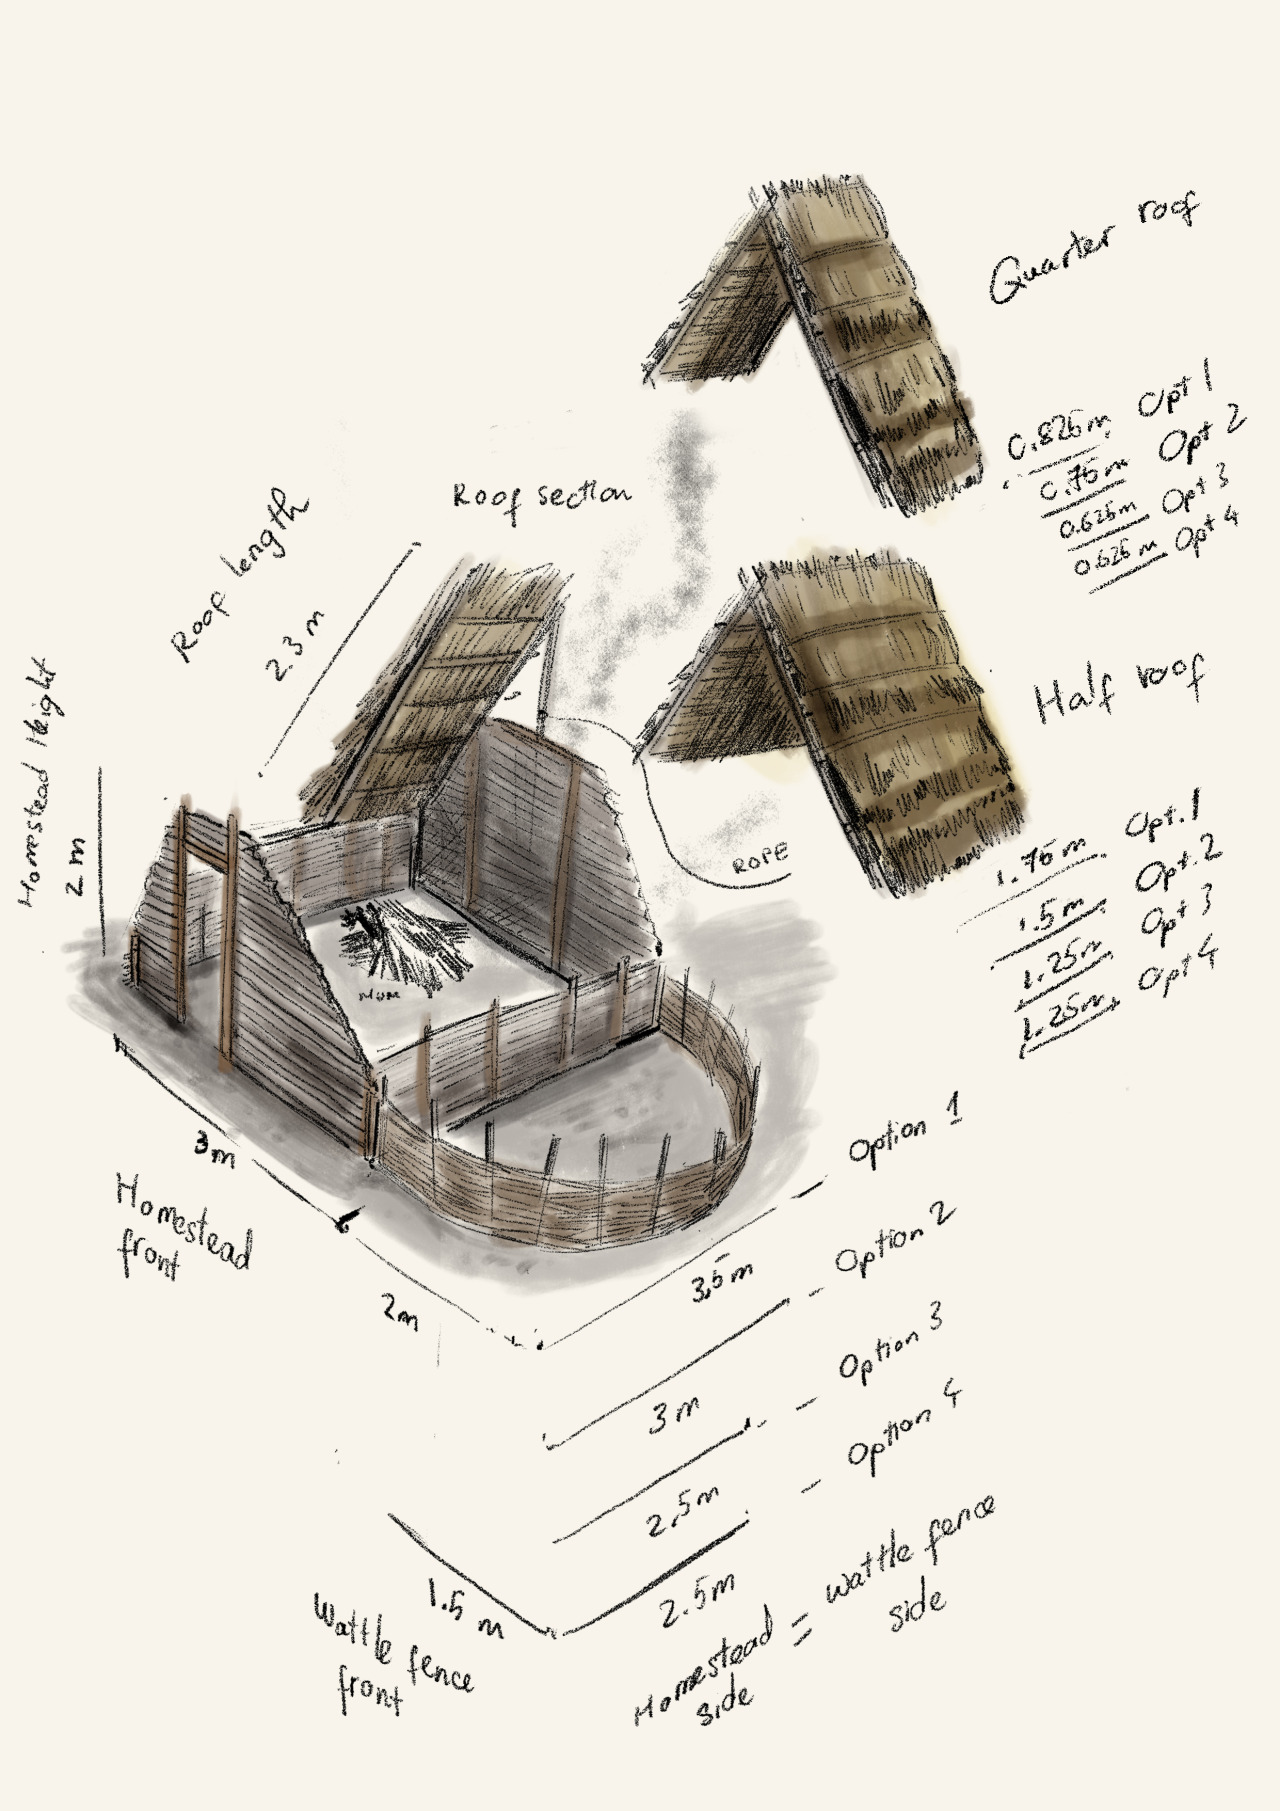 Quarter roof
0.825m Opt 1
0.75m Opt 2
0.625m Opt 3
0.625m Opt 4
Roof section
Roof length
2.3 m
Homestead Height
2 m
Half roof
1.75m Opt.1
1.5m Opt.2
1.25m Opt 3
1.25m Opt 4
ROPE
3m
Homestead
front
2m
3.5m
Option 1
3m
Option 2
2.5m
Option 3
2.5m
Option 4
1.5 m
Wattle fence
front
Homestead = wattle fence
side side